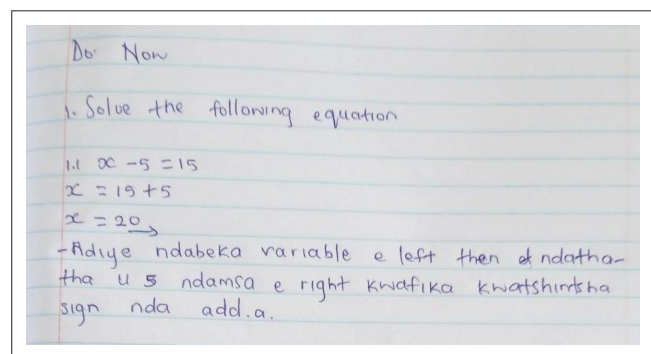 Do Now
1. Solve the following equation
1.1 x - 5 = 15
x = 15 + 5
x = 20
- Adiye ndabeka variable e left then ndatha-
tha u 5 ndamsa e right kwafika kwatshintsha
sign nda add.a.